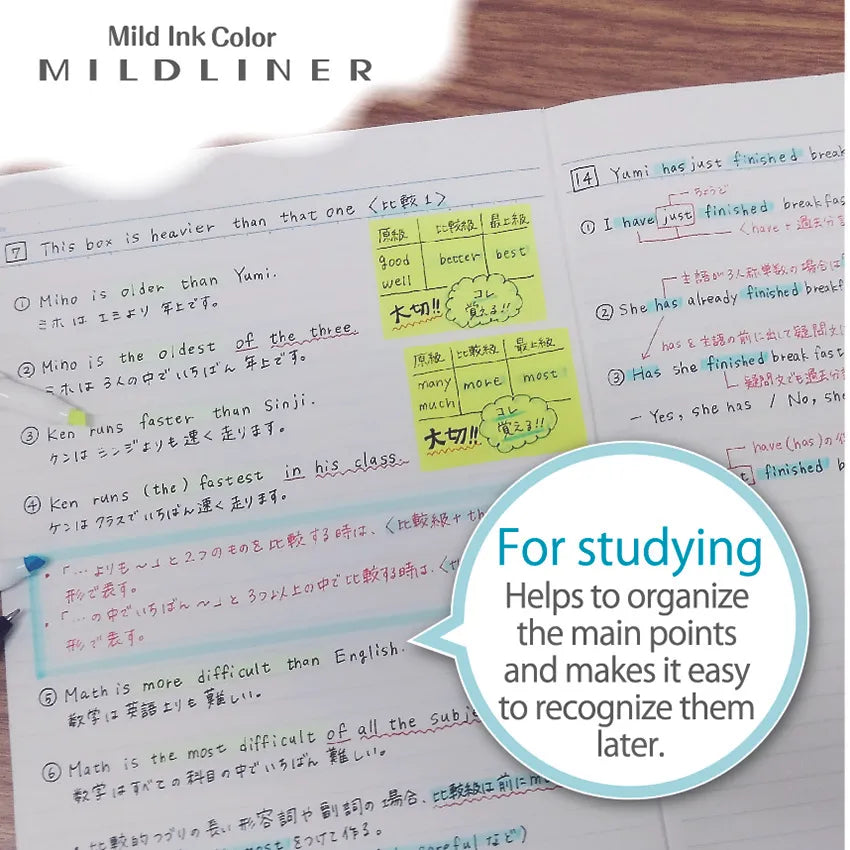 Mild Ink Color
MILDLINER
7 This box is heavier than that one 〈比較1〉
① Miho is older than Yumi.
ミホは エミより 年上です。
② Miho is the oldest of the three.
ミホは 3人の中でいちばん 年上です。
③ Ken runs faster than Sinji.
ケンは シンジよりも 速く 走ります。
④ Ken runs (the) fastest in his class.
ケンは クラスで いちばん 速く 走ります。
・「…よりも〜」と2つのものを比較する時は、〈比較級+th
形で表す。
・「…の中でいちばん〜」と3つ以上の中で比較する時は、〈
形で表す。
⑤ Math is more difficult than English.
数学は 英語よりも 難しい。
⑥ Math is the most difficult of all the subje
数学は すべての 科目の中で いちばん 難しい。
・比較的つづりの長い形容詞や副詞の場合、比較級は前にm
most をつけて作る。
careful など)
原級 比較級 最上級
good better best
well
大切!! コレ
覚える!!
原級 比較級 最上級
many more most
much
大切!! コレ
覚える!!
14 Yumi has just finished break
ちょうど
① I have just finished breakfas
〈have + 過去分
主語が3人称単数の場合は
② She has already finished breakf
has を主語の前に出して疑問文
③ Has she finished break fast
疑問文でも過去分
– Yes, she has / No, she
have(has)の
t finished b
For studying
Helps to organize
the main points
and makes it easy
to recognize them
later.